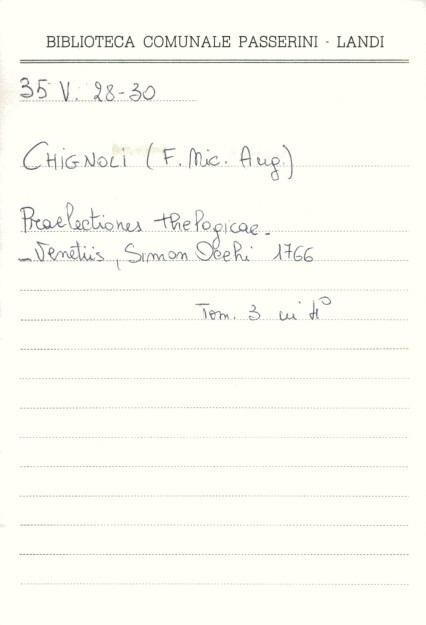 BIBLIOTECA COMUNALE PASSERINI - LANDI
35 V. 28-30
CHIGNOLI (F. Mic. Aug.)
Praelectiones thelogicae -
- Venetiis, Simon Occhi 1766
Tom. 3 in 4°